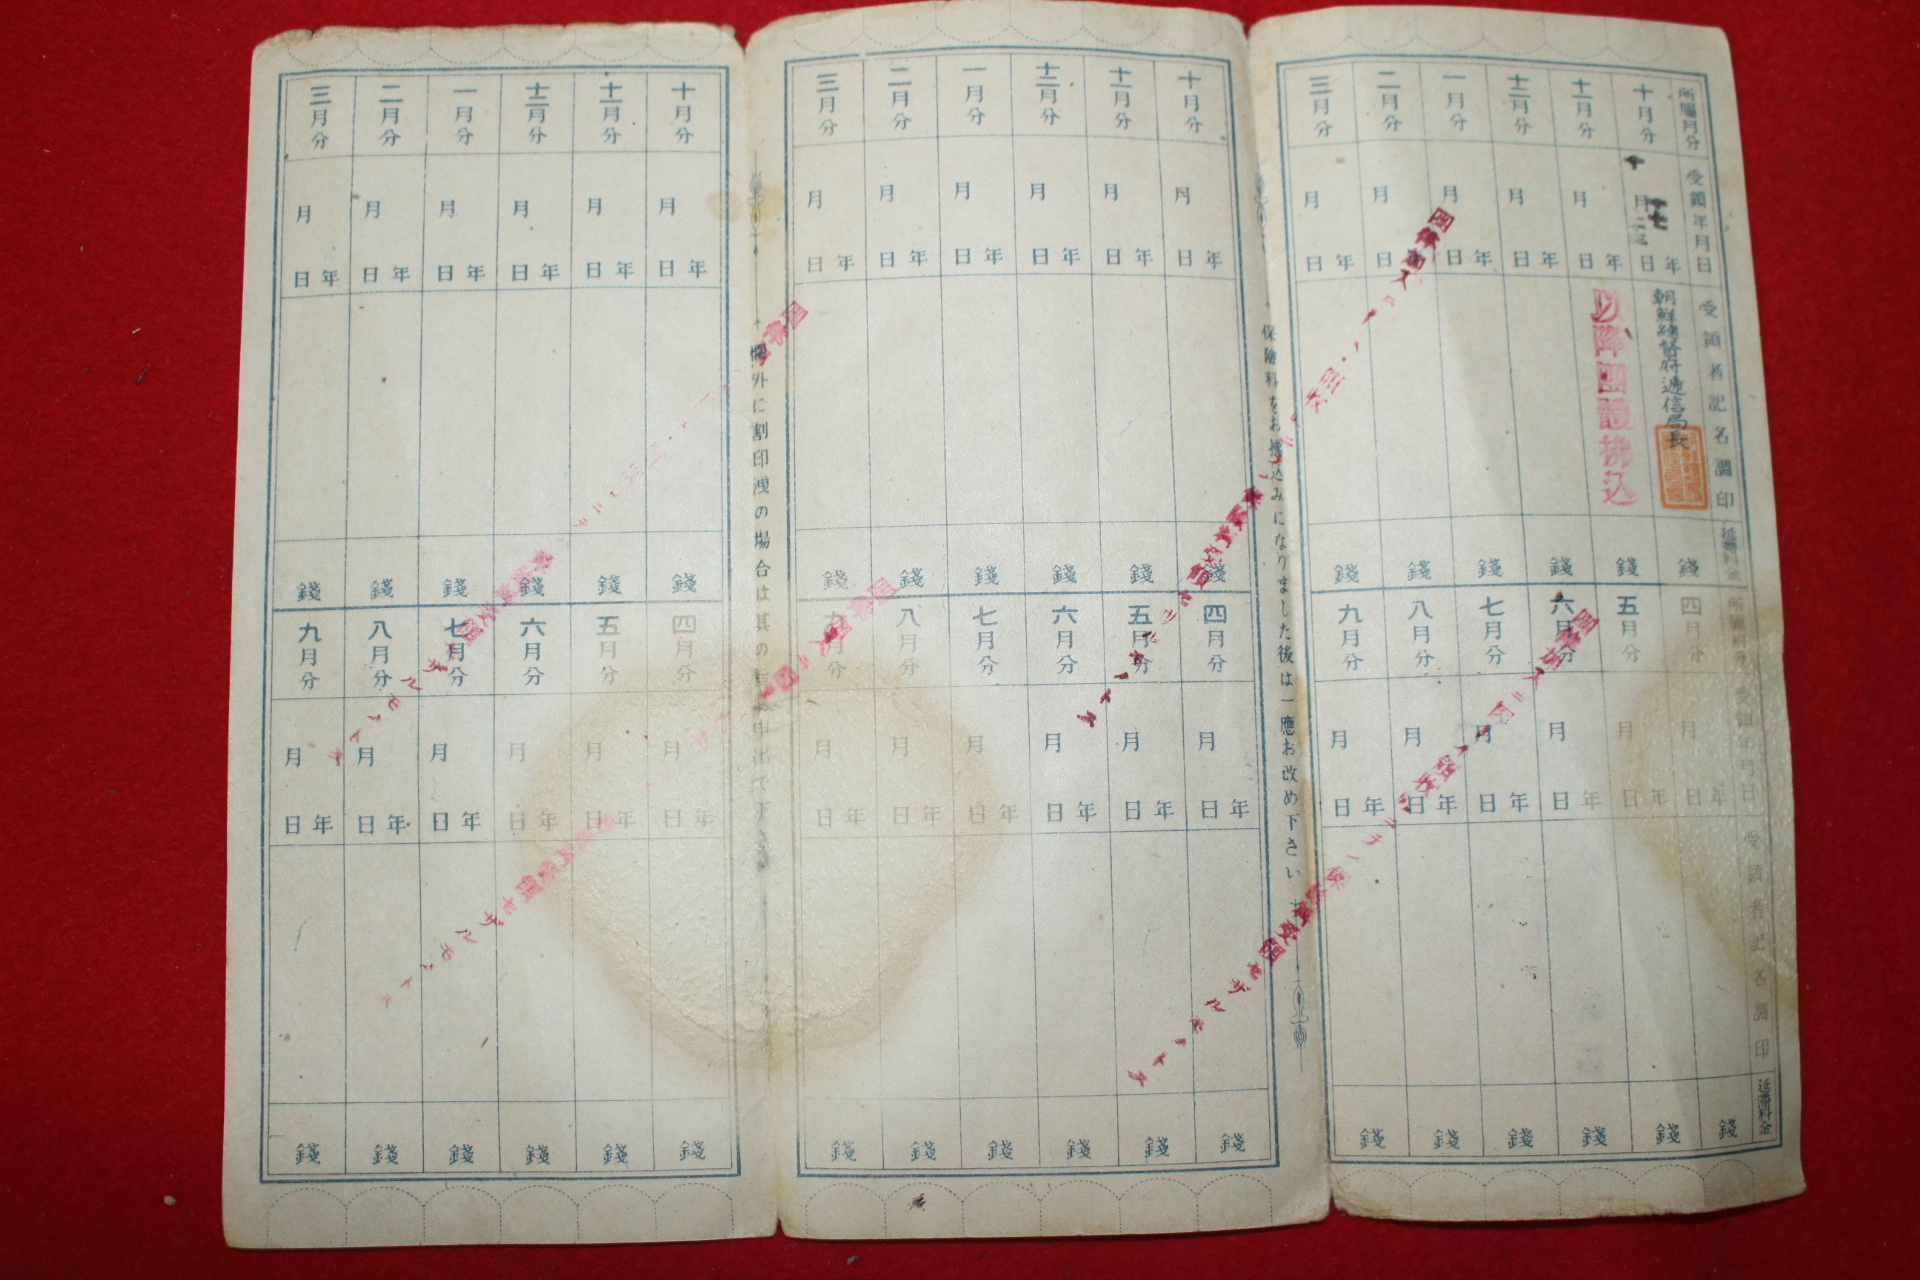 所屬月分
受領年月日
受領者記名調印
延滯料金
十月分
十 月 日
十七 年
朝鮮總督府遞信局長
錢
十一月分
月 日 年
以降團體拂込
錢
十二月分
月 日 年
錢
一月分
月 日 年
錢
二月分
月 日 年
錢
三月分
月 日 年
錢
所屬月分
受領年月日
受領者記名調印
延滯料金
四月分
月 日 年
錢
五月分
月 日 年
錢
六月分
月 日 年
錢
七月分
月 日 年
錢
八月分
月 日 年
錢
九月分
月 日 年
錢
保險料をお拂込みになりました後は一應お改め下さい
十月分
月 日 年
錢
十一月分
月 日 年
錢
十二月分
月 日 年
錢
一月分
月 日 年
錢
二月分
月 日 年
錢
三月分
月 日 年
錢
四月分
月 日 年
錢
五月分
月 日 年
錢
六月分
月 日 年
錢
七月分
月 日 年
錢
八月分
月 日 年
錢
九月分
月 日 年
錢
欄外に割印洩の場合は其の 申出で下さ
十月分
月 日 年
錢
十一月分
月 日 年
錢
十二月分
月 日 年
錢
一月分
月 日 年
錢
二月分
月 日 年
錢
三月分
月 日 年
錢
四月分
月 日 年
錢
五月分
月 日 年
錢
六月分
月 日 年
錢
七月分
月 日 年
錢
八月分
月 日 年
錢
九月分
月 日 年
錢